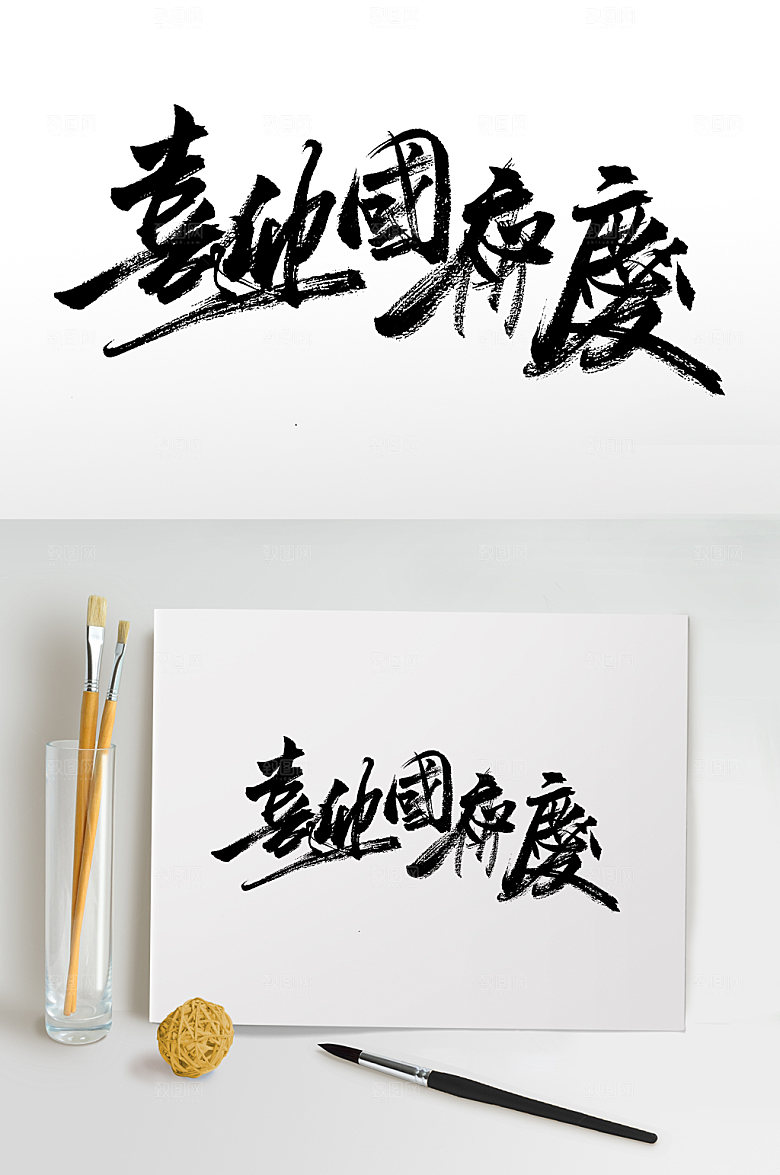 喜迎國齊慶
喜迎國齊慶